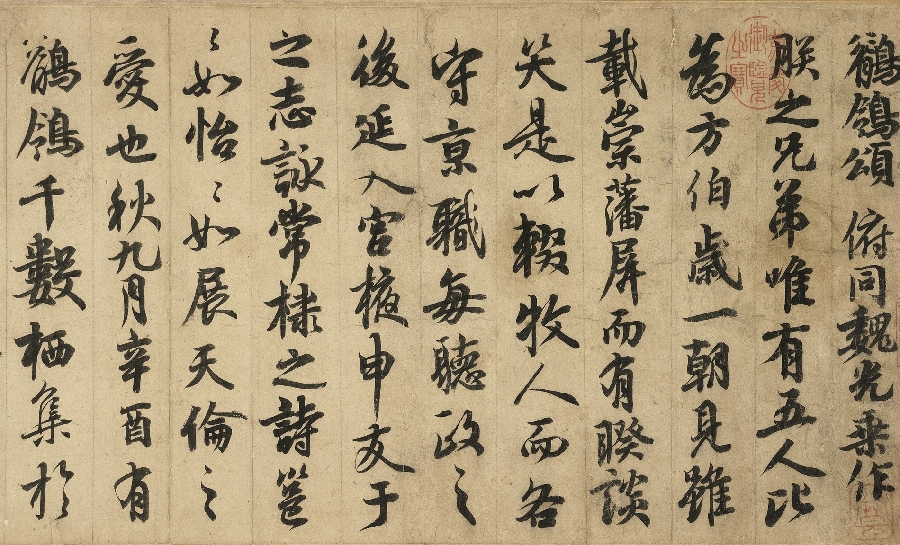 鶺鴒頌 俯同魏光乗作
朕之兄弟唯有五人比
為方伯歳一朝見雖
載崇藩屏而有睽談
笑是以輟牧人而各
守京職每聽政之
後延入宮掖申友于
之志詠常棣之詩邕
〻如怡〻如展天倫之
愛也秋九月辛酉有
鶺鴒千數栖集於